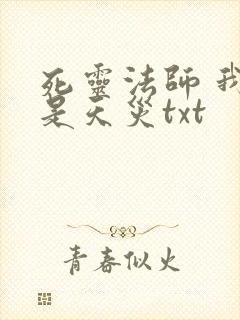 死靈法師 我
是天災txt
青春似火